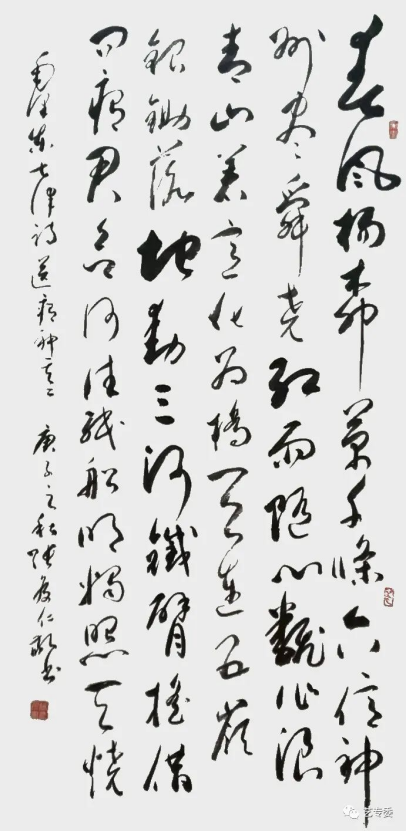 春风杨柳万千條六億神
州尽舜尧红雨随心翻作浪
青山着意化为橋天连五岭
銀鋤落地動三河鐵臂摇借
问瘟君欲何往纸船明燭照天燒
毛泽东七律诗送瘟神其二 庚子之秋张仁敬书
艺专委